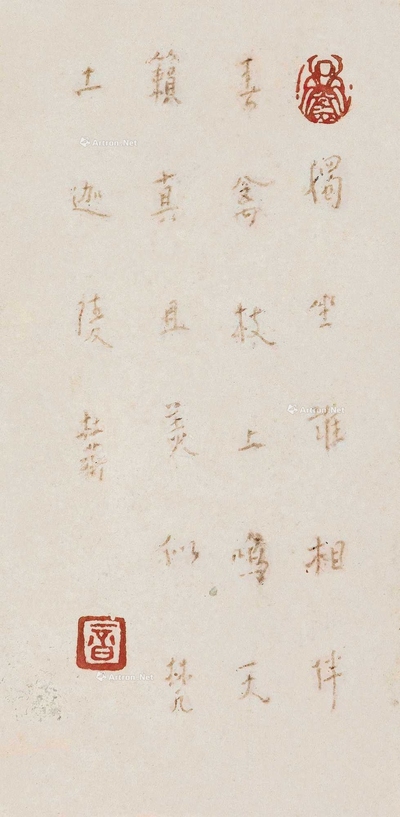 獨坐誰相伴
春禽枝上鳴天
籟真且美似梵
土迦陵
Artron.Net
Artron.Net
Artron.Net